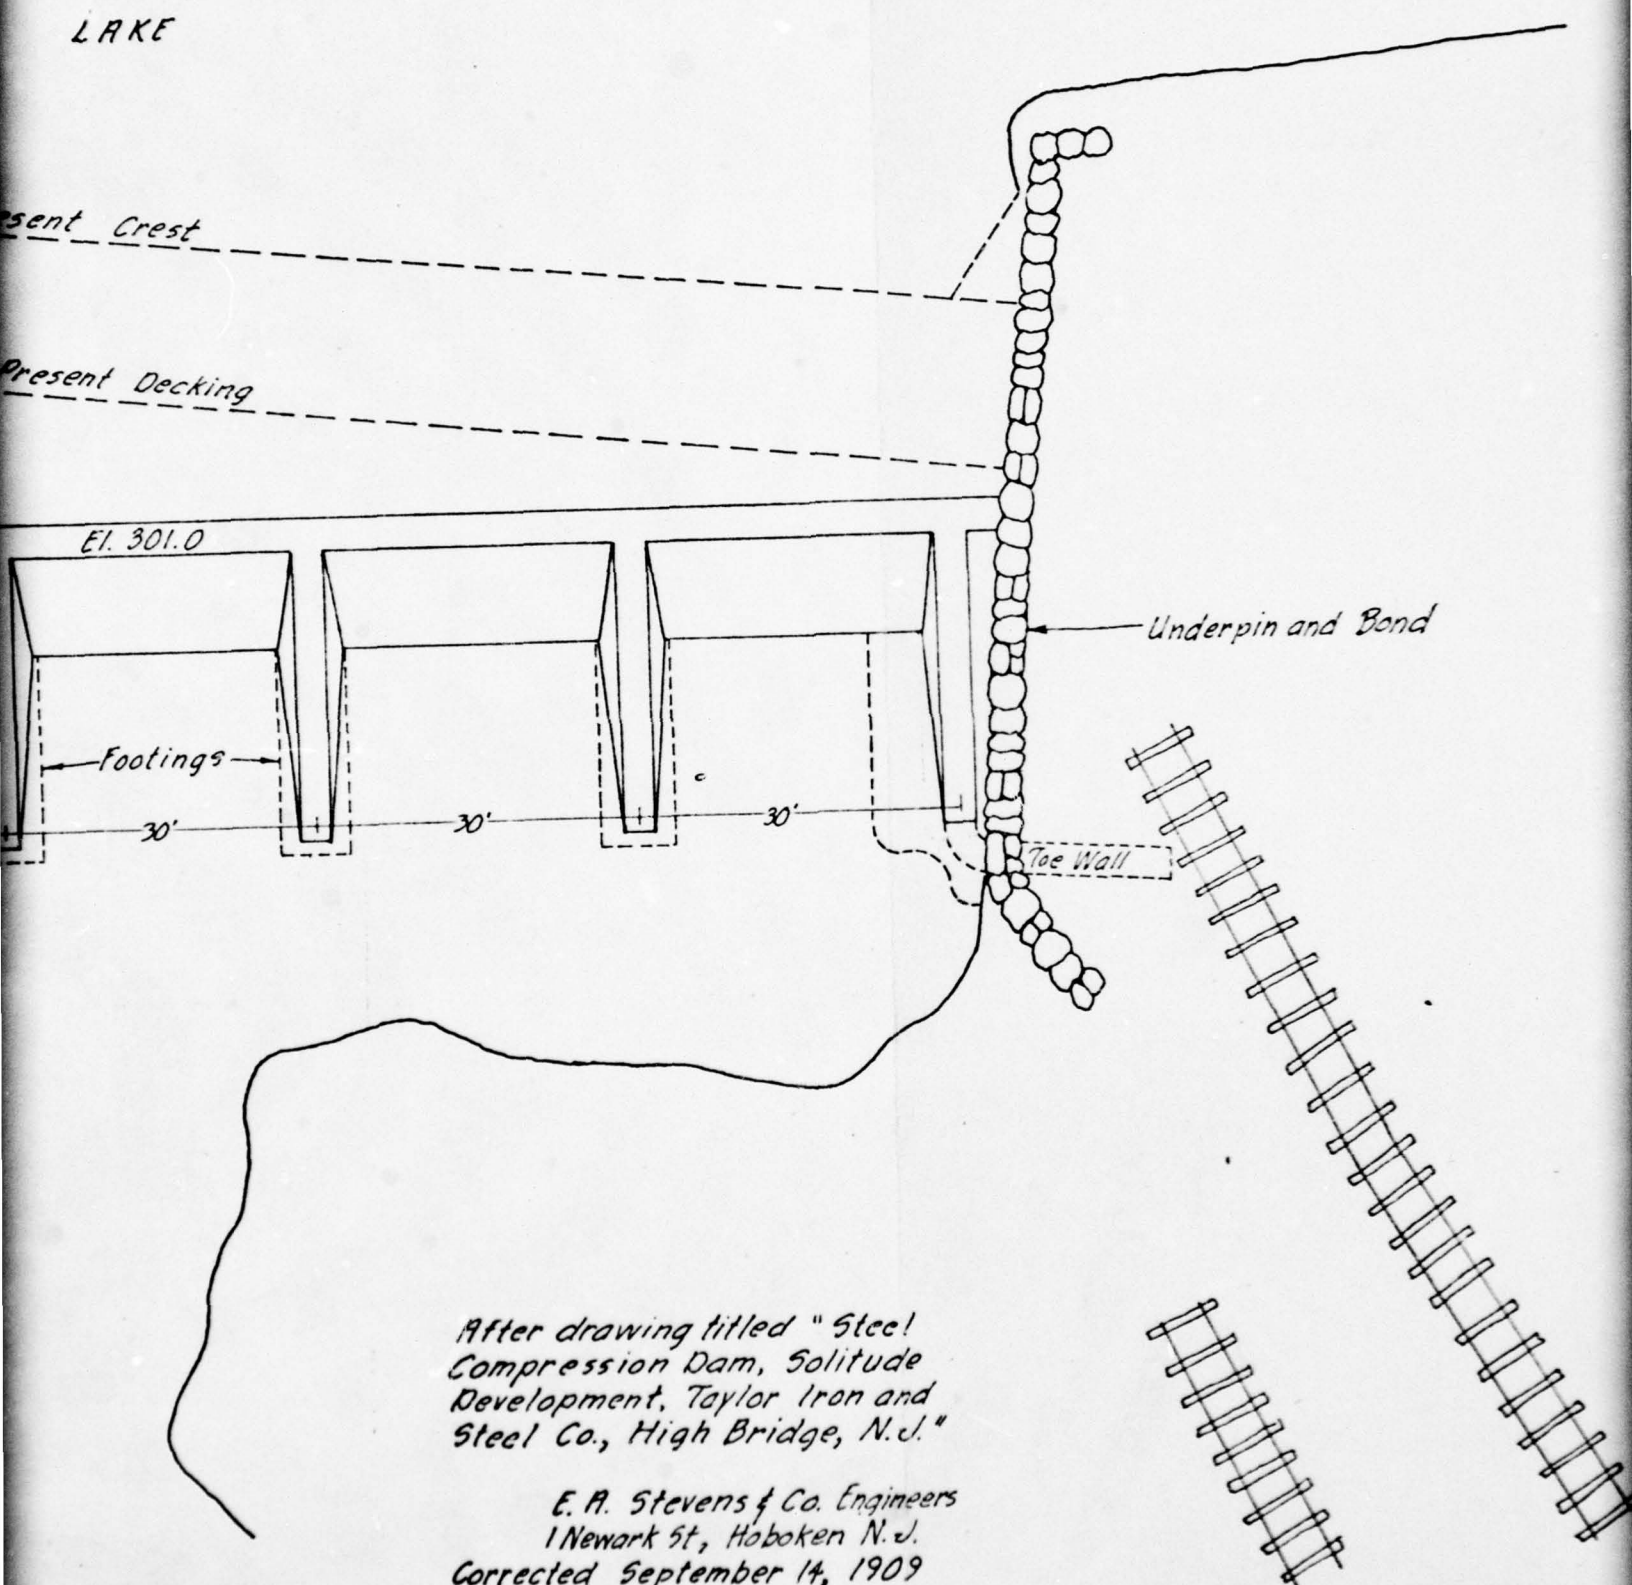 LAKE
esent Crest
Present Decking
El. 301.0
Underpin and Bond
Footings
30' 30' 30'
Toe Wall
After drawing titled "Steel
Compression Dam, Solitude
Development, Taylor Iron and
Steel Co., High Bridge, N.J."
E. A. Stevens & Co. Engineers
1 Newark St, Hoboken N.J.
Corrected September 14, 1909